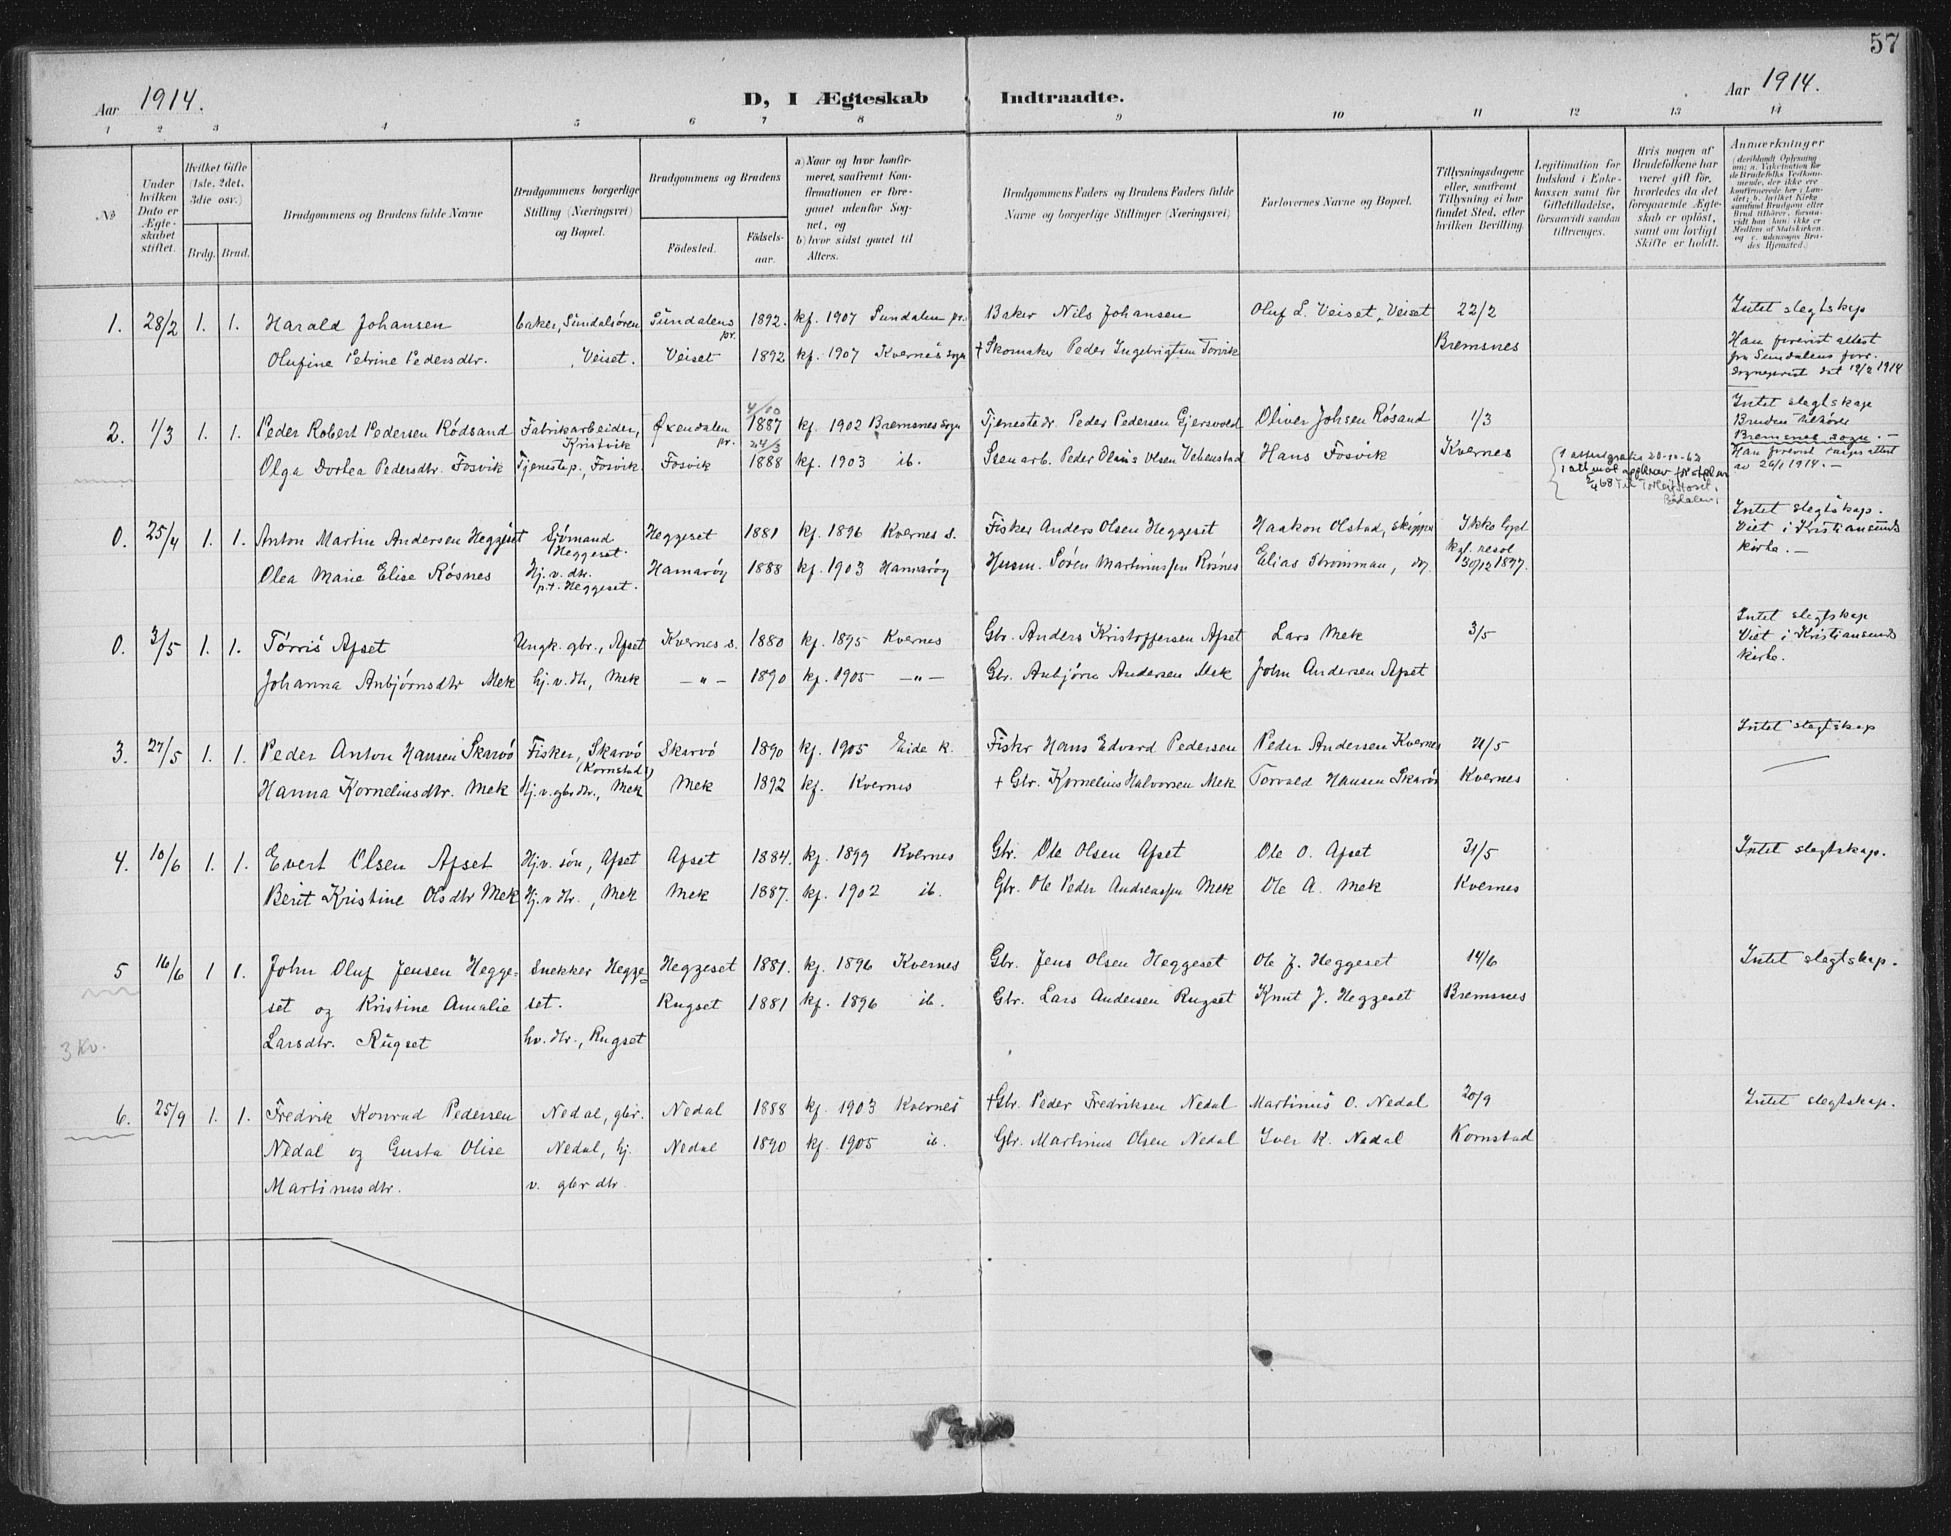 57
Aar 1914.
D, I Ægteskab Indtraadte.
Aar 1914.
1 2 3 4 5 6 7 8 9 10 11 12 13 14
No
Under hvilken Dato er Ægteskabet stiftet.
Hvilket Gifte (1ste, 2det, 3die osv.)
Brdg. Brud.
Brudgommens og Brudens fulde Navne
Brudgommens borgerlige Stilling (Næringsvei) og Bopæl.
Brudgommens og Brudens
Fødested.
Fødselsaar.
a) Naar og hvor konfirmeret, saafremt Konfirmationen er foregaaet udenfor Sognet, og
b) hvor sidst gaaet til Alters.
Brudgommens Faders og Brudens Faders fulde Navne og borgerlige Stillinger (Næringsvei)
Forlovernes Navne og Bopæl.
Tillysningsdagene eller, saafremt Tillysning ei har fundet Sted, efter hvilken Bevilling.
Legitimation for Indskud i Enkekassen samt for Giftetilladelse, forsaavidt saadan tiltrænges.
Hvis nogen af Brudefolkene har været gift før, hvorledes da det foregaaende Ægteskab er opløst, samt om lovligt Skifte er holdt.
Anmærkninger
1. 28/2 1. 1. Harald Johansen baker, Sundalsören Sundalens pr. 1892. kf. 1907 Sundalen pr. Baker Nils Johansen Oluf L. Veiset, Veiset 22/2 Intet slegtskap
Olufine Petrine Pedersdtr. Veiset. Veiset 1892 kf. 1907 Kvernes sogn + Skomaker Peder Ingebrigtsen Torvik Bremsnes Han forevist attest
fra Sundalens
sogneprest dat 12/2 1914
2. 1/3 1. 1. Peder Robert Pedersen Rödsand Fabrikarbeider, Kristvik Øxendalen pr. 4/10 1887 kf. 1902 Bremsnes sogn Tjenestedr. Peder Pedersen Gjersvold Oliver Johsen Rösand 1/3 Intet slegtskap
Bruden tilhører
Bremsnes sogn. —
Olga Dorthea Pedersdtr. Fosvik Tjenestep., Fosvik Fosvik 24/3 1888 kf. 1903 ib. Stenarb. Peder Olaus Olsen Vebenstad Hans Fosvik Kvernes 1 attest gratis 20-10-62 Han forevist attest
av 26/1 1914. —
0. 25/4 1. 1. Anton Martin Andersen Heggeset Sjömand Heggeset. Heggeset 1881 kf. 1896 Kvernes s. Fisker Anders Olsen Heggeset Haakon Olstad, skipper Ikke lyst Intet slegtskap.
Viet i Kristiansunds
kirke. —
Olea Marie Elise Rösnes Hj. v. dtr. p.t. Heggeset. Hamaröy 1888 kf. 1903 Hamaröy Husm. Sören Martinussen Rösnes Elias Strömman, do. kgl. resol 30/12 1897.
0. 3/5 1. 1. Törris Afset Ungk. gbr., Afset Kvernes s. 1880 kf. 1895 Kvernes Gbr. Anders Kristoffersen Afset Lars Mek 3/5 Intet slegtskap
Viet i Kristiansunds
kirke.
Johanna Anbjørnsdtr Mek hj. v. dtr, Mek — " — 1890 kf. 1905 — " — Gbr. Anbjørn Andersen Mek John Andersen Afset
3. 27/5 1. 1. Peder Anton Hansen Skarvö Fisker, Skarvö (Kornstad) Skarvö 1890 kf. 1905 Eide k. Fiskr Hans Edvard Pedersen Peder Andersen Kvernes 21/5 Intet slegtskap
Hanna Kornelinsdtr. Mek Hj. v. gbrdtr., Mek Mek 1892 kf. Kvernes + Gbr. Kornelius Halvorsen Mek Torvald Hansen Skarvö Kvernes
4. 10/6 1. 1. Evert Olsen Afset Hj. v. sön, Afset Afset 1884. kf. 1899 Kvernes Gbr. Ole Olsen Afset Ole O. Afset 31/5 Intet slegtskap.
Berit Kristine Olsdtr Mek Hj. v dtr., Mek Mek 1887. kf. 1902 ib. Gbr. Ole Peder Andreassen Mek Ole A. Mek Kvernes
5 16/6 1 1. John Oluf Jensen Hegge- Snekker Hegge- Heggeset 1881. kf. 1896 Kvernes Gbr. Jens Olsen Heggeset Ole J. Heggeset 14/6 Intet slegtskap.
set og Kristine Amalie set. Rugset 1881 kf. 1896 ib. Gbr. Lars Andersen Rugset Knut J. Heggeset Bremsnes
3 Kv. Larsdtr. Rugset hv. dtr., Rugset
6. 25/9 1. 1. Fredrik Konrad Pedersen Nedal, gbr. Nedal 1888 kf. 1903 Kvernes + Gbr. Peder Fredriksen Nedal Martinus O. Nedal 20/9 Intet slegtskap.
Nedal og Gusta Olise Nedal, hj. Nedal 1890 kf. 1905 ib. Gbr. Martinus Olsen Nedal Iver K. Nedal Kornstad
Martinusdtr. v. gbrdtr.